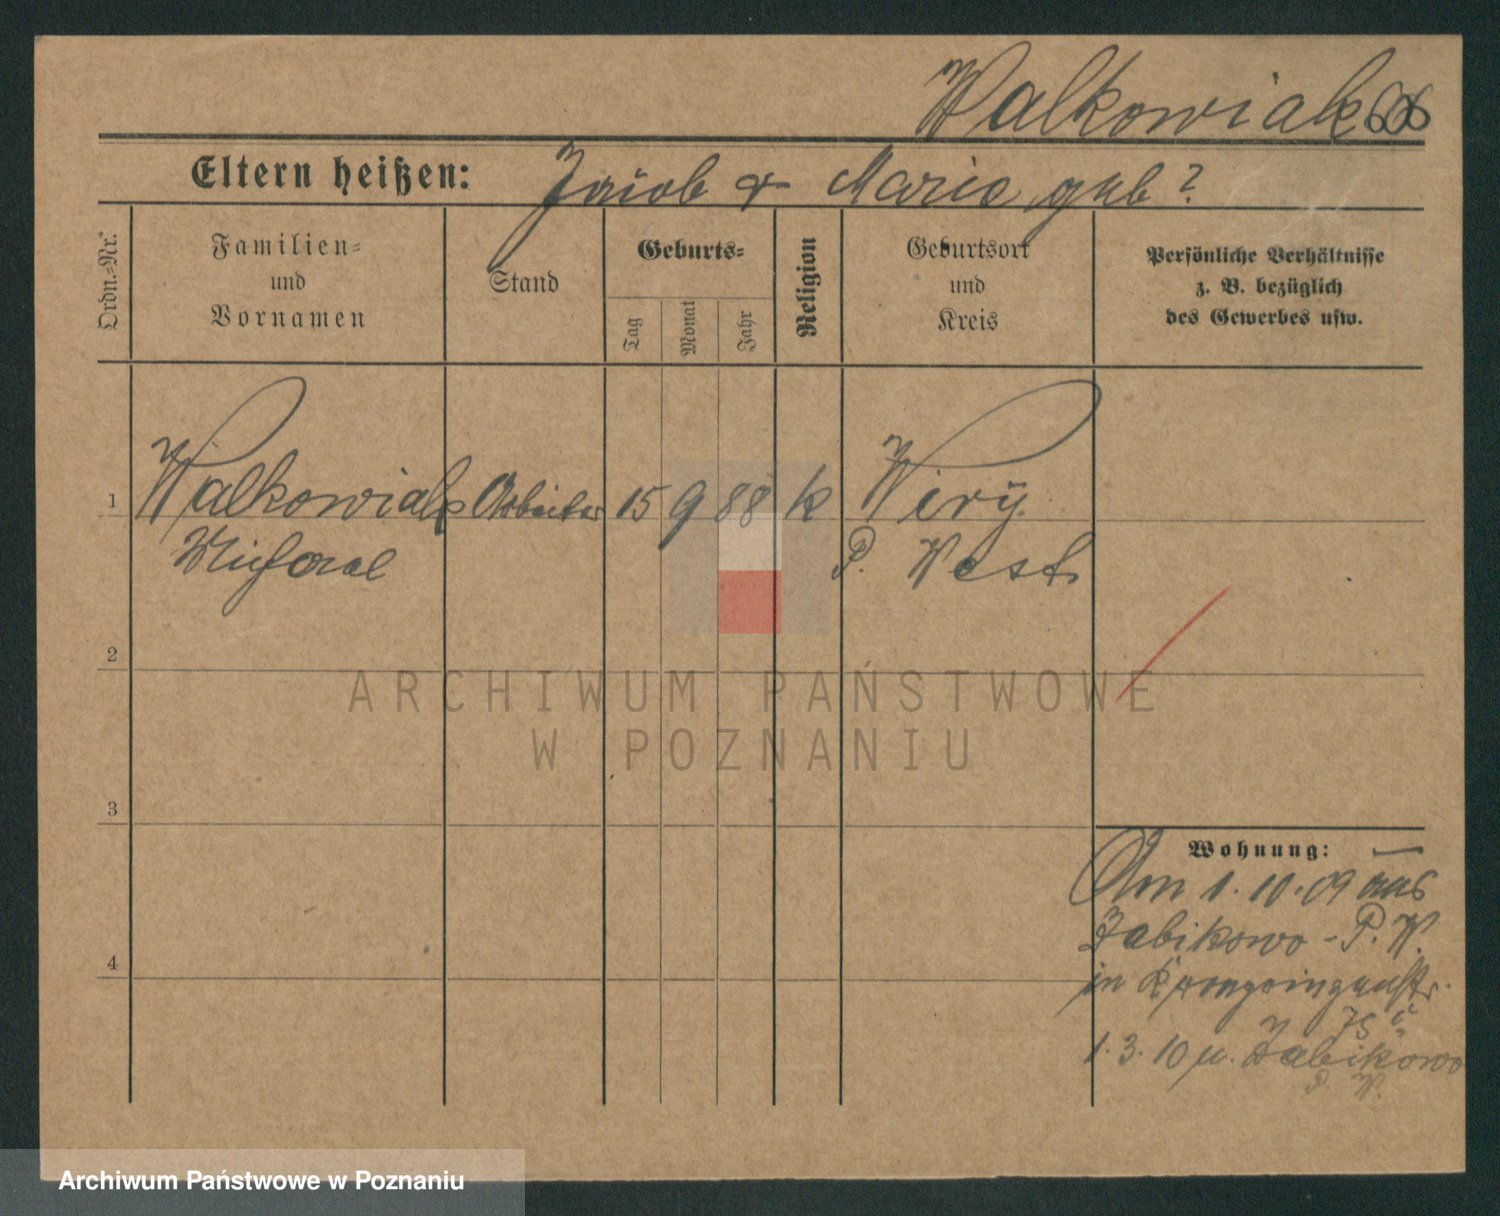 Walkowiak
Eltern heißen: Jacob & Maria geb?
Ordn.-Nr.
Familien-
und
Vornamen
Stand
Geburts-
Tag
Monat
Jahr
Religion
Geburtsort
und
Kreis
Persönliche Verhältnisse
z. B. bezüglich
des Gewerbes usw.
1 Walkowiak Arbeiter 15 9 88 k Wiry
Michael P. West
2
3
4
Wohnung:
Am 1.10.09 aus
Zabikowo - P. W.
in
1.3.10 n. Zabikowo
P. W.
ARCHIWUM PAŃSTWOWE
W POZNANIU
Archiwum Państwowe w Poznaniu